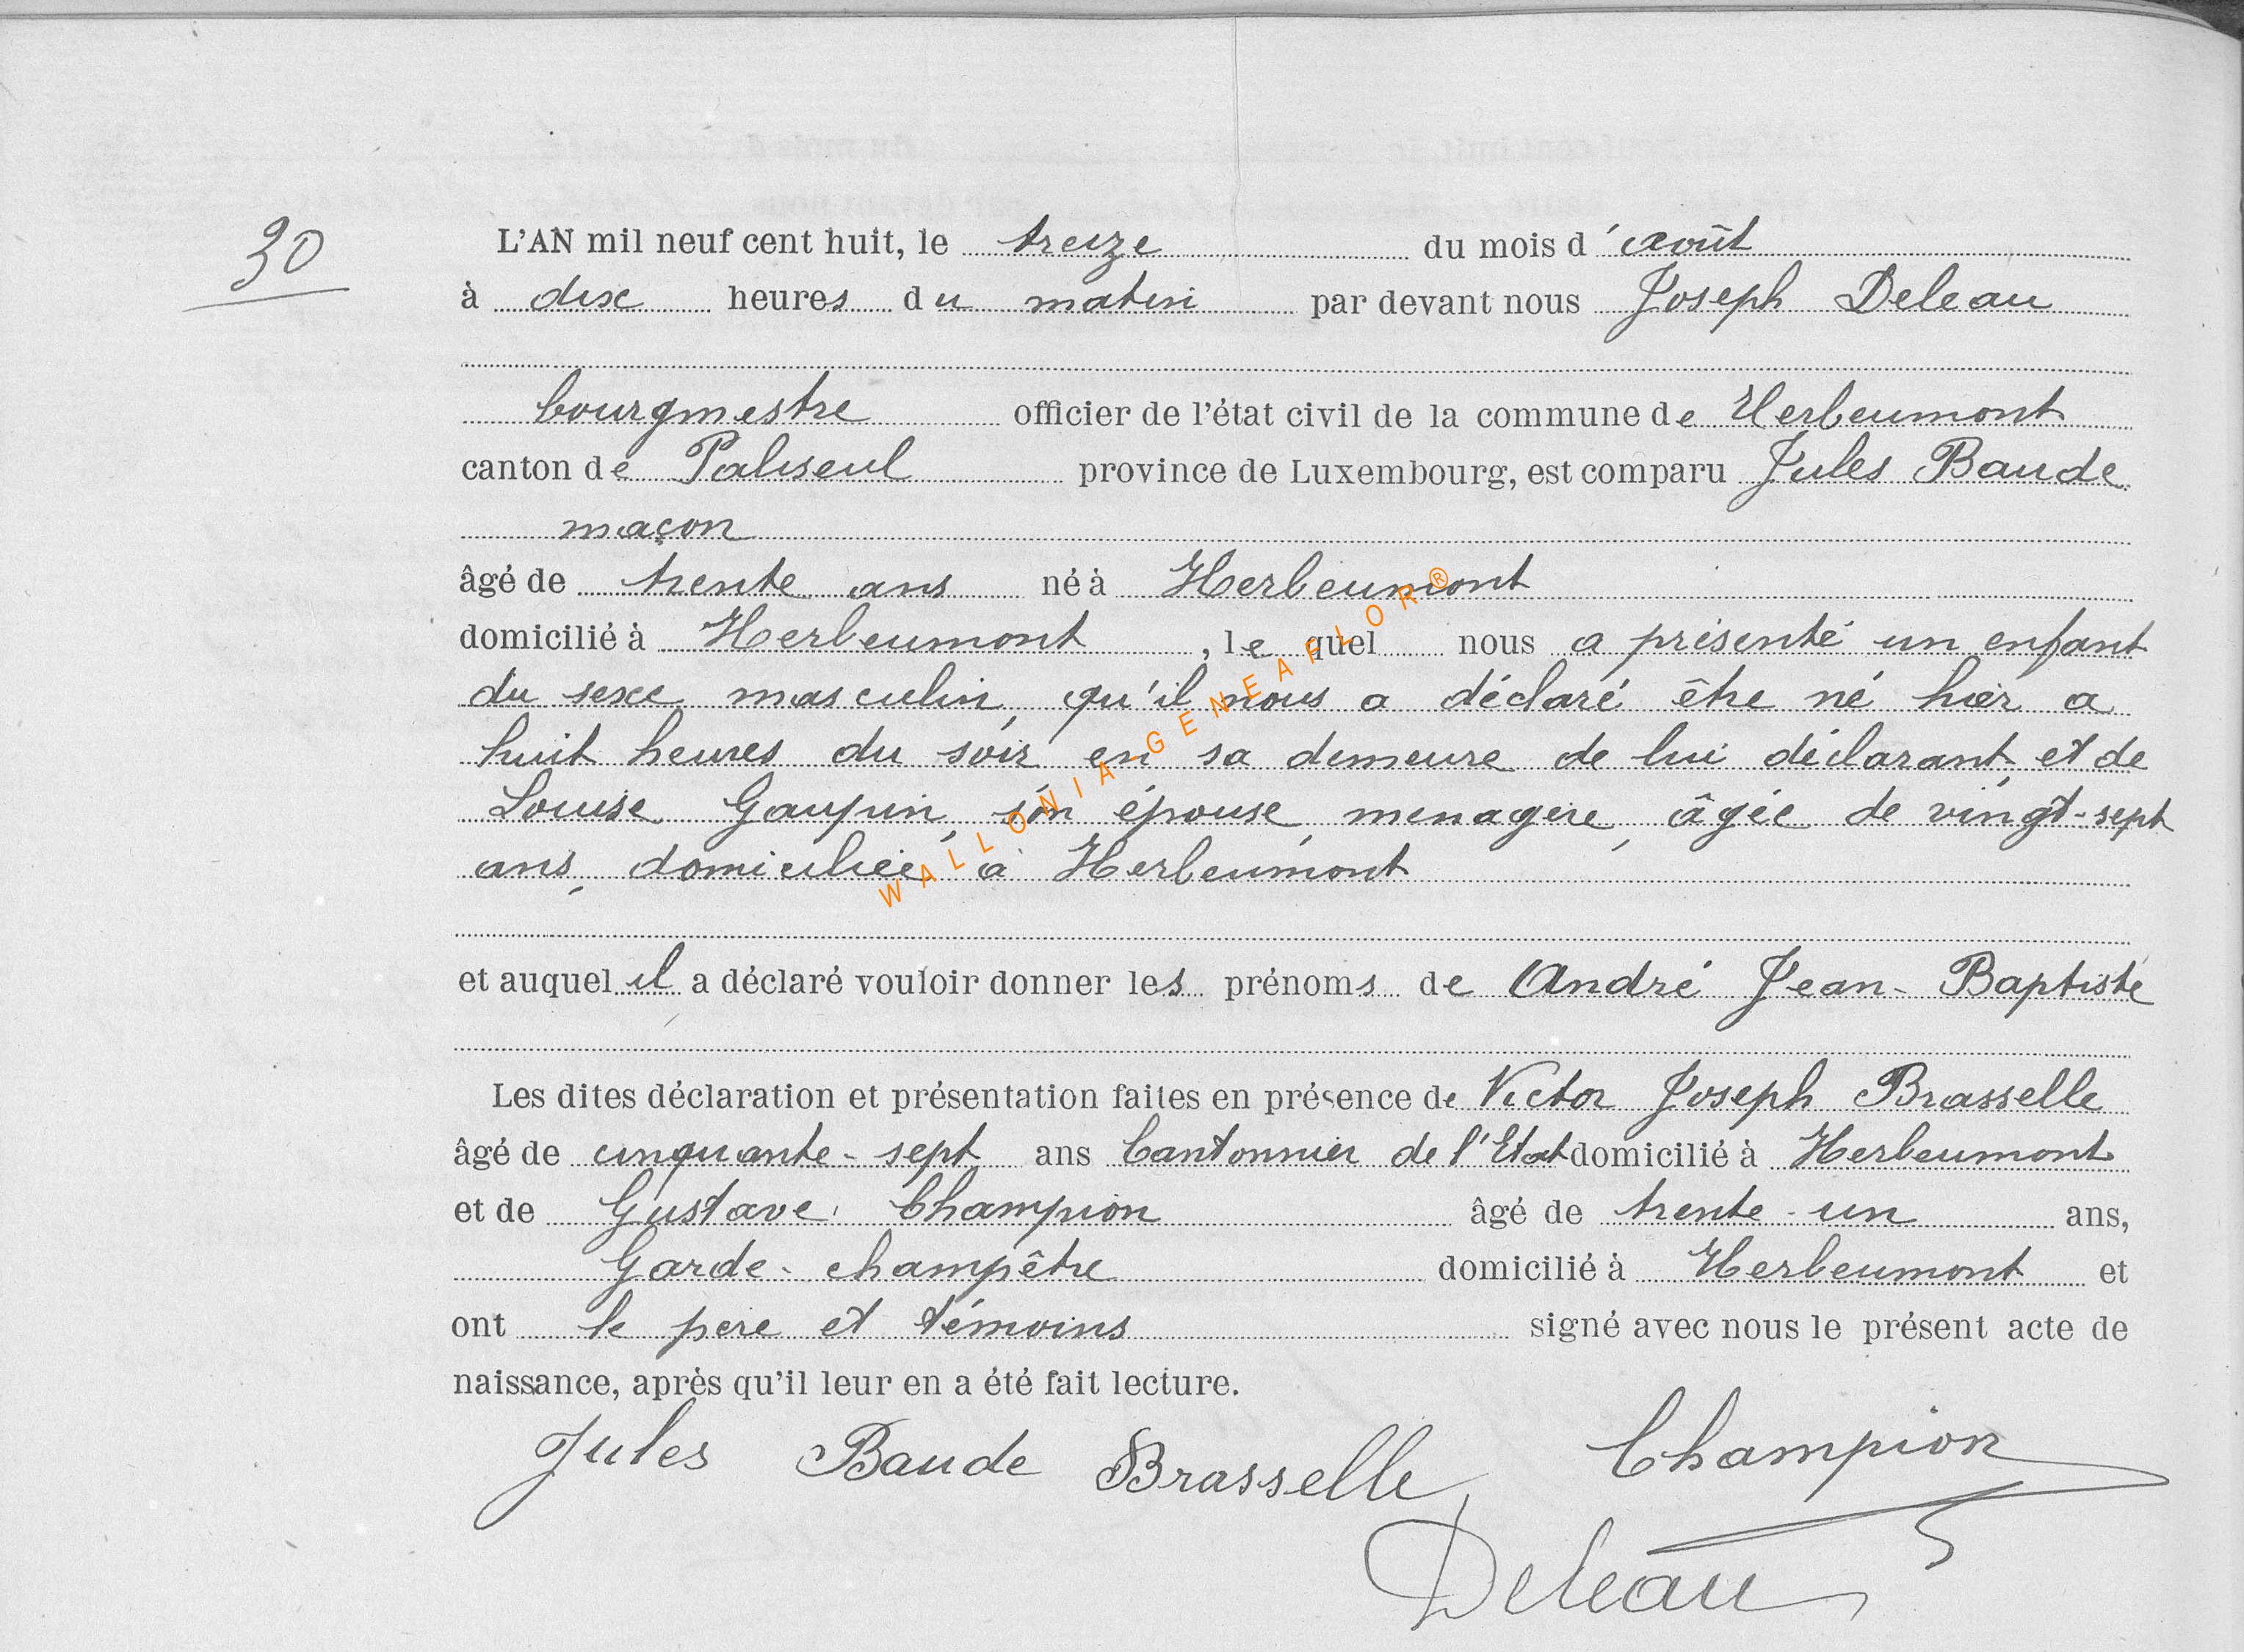 30
L'AN mil neuf cent huit, le treize du mois d'août
à dix heures du matin par devant nous Joseph Deleau
bourgmestre officier de l'état civil de la commune de Herbeumont
canton de Paliseul province de Luxembourg, est comparu Jules Baude
maçon
âgé de trente ans né à Herbeumont
domicilié à Herbeumont, lequel nous a présenté un enfant
du sexe masculin, qu'il nous a déclaré être né hier a
huit heures du soir en sa demeure de lui déclarant et de
Louise Gaupin, son épouse, menagère, âgée de vingt-sept
ans, domiciliée à Herbeumont
WALLONIA-GENEAFLOR®
et auquel il a déclaré vouloir donner les prénoms de André Jean-Baptiste
Les dites déclaration et présentation faites en présence de Victor Joseph Brasselle
âgé de cinquante-sept ans Cantonnier de l'Etat domicilié à Herbeumont
et de Gustave Champion âgé de trente-un ans,
Garde-champêtre domicilié à Herbeumont et
ont le père et témoins signé avec nous le présent acte de
naissance, après qu'il leur en a été fait lecture.
Jules Baude Brasselle Champion
Deleau